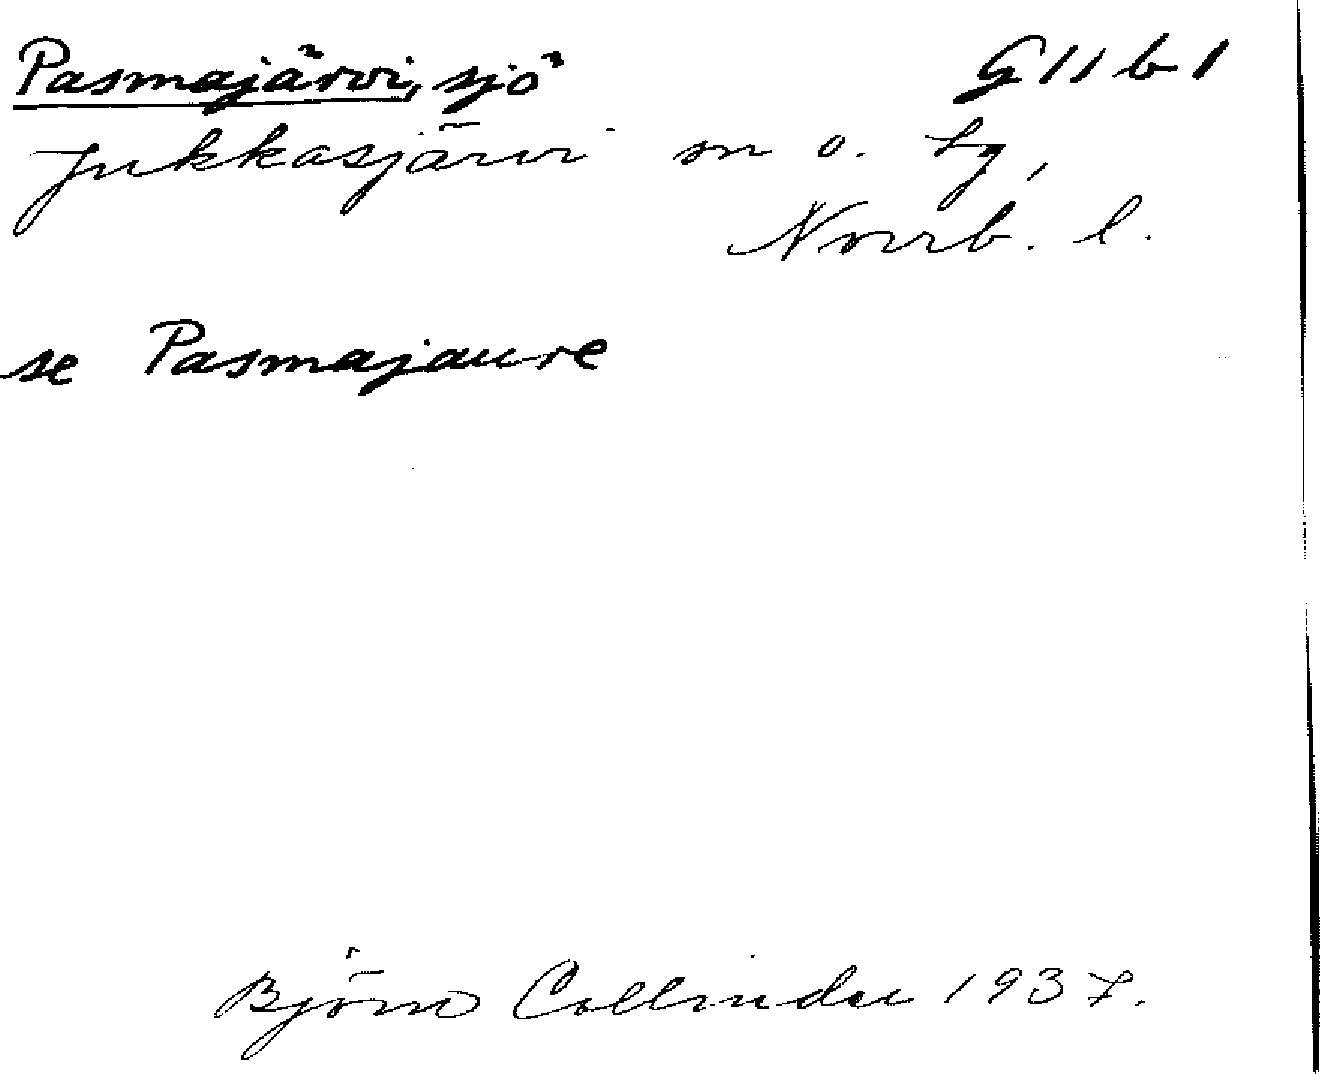 Pasmajärvi, sjö G 11 b 1
Jukkasjärvi sn o. tg,
Norrb. l.
se Pasmajaure
Björn Collinder 1937.